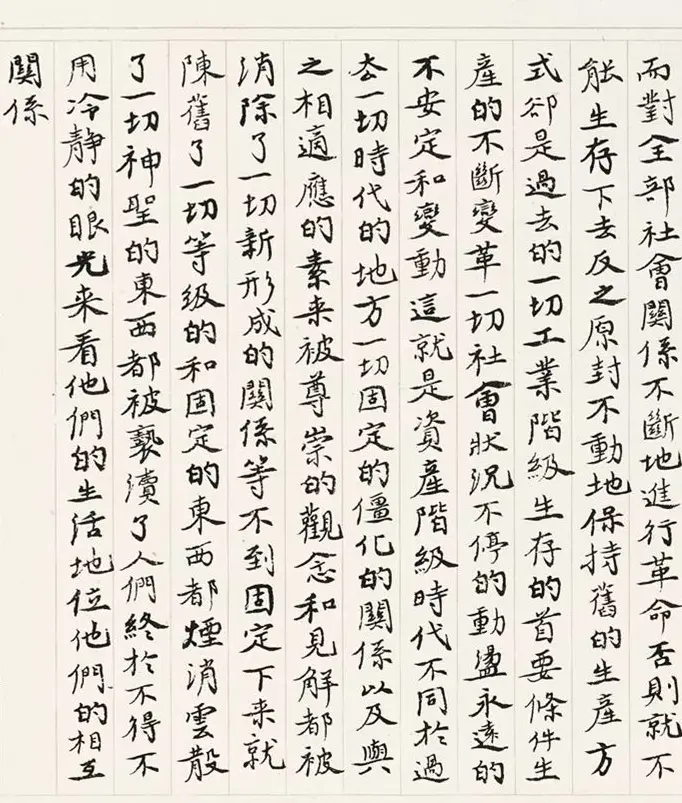 而對全部社會關係不斷地進行革命否則就不
能生存下去反之原封不動地保持舊的生産方
式卻是過去的一切工業階級生存的首要條件生
産的不斷變革一切社會狀況不停的動盪永遠的
不安定和變動這就是資産階級時代不同於過
去一切時代的地方一切固定的僵化的關係以及與
之相適應的素来被尊崇的觀念和見解都被
消除了一切新形成的關係等不到固定下来就
陳舊了一切等級的和固定的東西都煙消雲散
了一切神聖的東西都被褻瀆了人們終於不得不
用冷静的眼光来看他們的生活地位他們的相互
關係